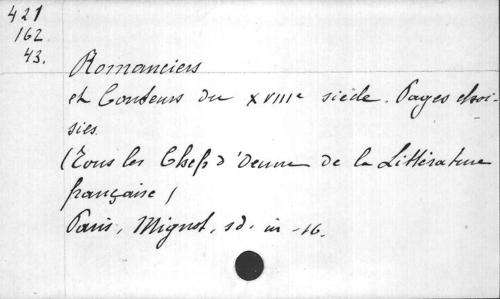 421
162
43.
Romanciers
et Conteurs du XVIIIe siècle. Pages choi-
sies
(Tous les Chefs d'Oeuvre de la Littérature
française)
Paris, Mignot, sd. in-16.